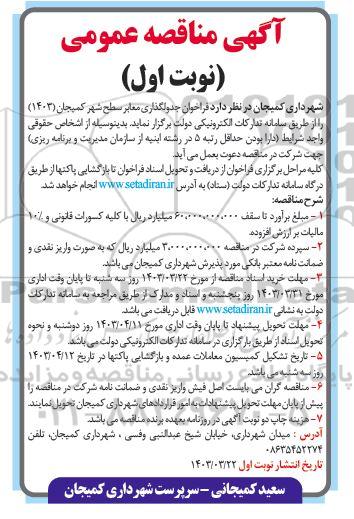 آگهی مناقصه عمومی
(نوبت اول)
شهرداری کمیجان در نظر دارد فراخوان جدولگذاری معابر سطح شهر کمیجان (۱۴۰۳)
را از طریق سامانه تدارکات الکترونیکی دولت برگزار نماید. بدینوسیله از اشخاص حقوقی
واجد شرایط (دارا بودن حداقل رتبه ۵ در رشته ابنیه از سازمان مدیریت و برنامه ریزی)
جهت شرکت در مناقصه دعوت بعمل می آید.
کلیه مراحل برگزاری فراخوان از دریافت و تحویل اسناد فراخوان تا بازگشایی پاکتها از طریق
درگاه سامانه تدارکات دولت (ستاد) به آدرس www.setadiran.ir انجام خواهد شد.
شرح مناقصه:
۱ – مبلغ برآورد تا سقف ۶۰,۰۰۰,۰۰۰,۰۰۰ میلیارد ریال با کلیه کسورات قانونی و ۱۰٪
مالیات بر ارزش افزوده.
۲– سپرده شرکت در مناقصه ۳,۰۰۰,۰۰۰,۰۰۰ میلیارد ریال که به صورت واریز نقدی و
ضمانت نامه معتبر بانکی مورد پذیرش شهرداری کمیجان می باشد.
۳– مهلت خرید اسناد مناقصه از مورخ ۱۴۰۳/۰۳/۲۲ روز سه شنبه تا پایان وقت اداری
مورخ ۱۴۰۳/۰۳/۳۱ روز پنجشنبه و اسناد و مدارک از طریق مراجعه به سامانه تدارکات
دولت به نشانی www.setadiran.ir قابل دریافت می باشد.
۴– مهلت تحویل پیشنهاد تا پایان وقت اداری مورخ ۱۴۰۳/۰۴/۱۱ روز دوشنبه و نحوه
تحویل اسناد از طریق بارگزاری در سامانه تدارکات الکترونیکی دولت می باشد.
۵– تاریخ تشکیل کمیسیون معاملات عمده و بازگشایی پاکتها در تاریخ ۱۴۰۳/۰۴/۱۲
روز سه شنبه می باشد.
۶– مناقصه گران می بایست اصل فیش واریز نقدی و ضمانت نامه شرکت در مناقصه را
پیش از پایان مهلت تحویل پیشنهادات به امور قراردادهای شهرداری کمیجان تحویل نمایند.
۷– هزینه چاپ دو نوبت آگهی در روزنامه بعهده برنده مناقصه می باشد.
آدرس : میدان شهرداری، خیابان شیخ عبدالنبی وفسی ، شهرداری کمیجان، تلفن
۰۸۶۳۵۴۵۲۲۷۴
تاریخ انتشار نوبت اول ۱۴۰۳/۰۳/۲۲
سعید کمیجانی – سرپرست شهرداری کمیجان